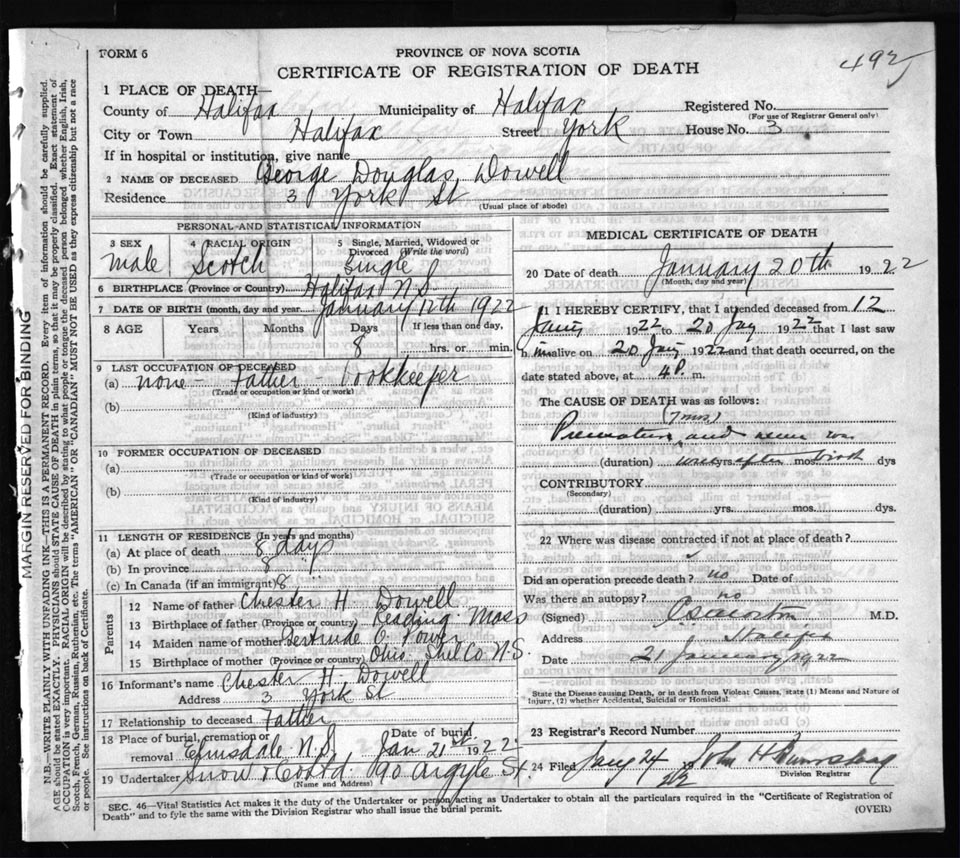 FORM 6
PROVINCE OF NOVA SCOTIA
4925
CERTIFICATE OF REGISTRATION OF DEATH
1 PLACE OF DEATH—
County of Halifax Municipality of Halifax Registered No.
(For use of Registrar General only)
City or Town Halifax Street York House No. 3
If in hospital or institution, give name
2 NAME OF DECEASED George Douglas Dowell
Residence 3 York St
(Usual place of abode)
PERSONAL AND STATISTICAL INFORMATION
3 SEX 4 RACIAL ORIGIN 5 Single, Married, Widowed or
Divorced (Write the word)
Male Scotch Single
6 BIRTHPLACE (Province or Country) Halifax N.S.
7 DATE OF BIRTH (month, day and year) January 12th 1922
8 AGE Years Months Days If less than one day,
8 hrs. or min.
9 LAST OCCUPATION OF DECEASED
(a) none - Father - bookkeeper
(Trade or occupation or kind or work)
(b)
(Kind of industry)
10 FORMER OCCUPATION OF DECEASED
(a)
(Trade or occupation or kind or work)
(b)
(Kind of industry)
11 LENGTH OF RESIDENCE (In years and months)
(a) At place of death 8 days
(b) In province 8 "
(c) In Canada (if an immigrant) 8
Parents
12 Name of father Chester H Dowell
13 Birthplace of father (Province or country) Reading Mass
14 Maiden name of mother Gertrude O Power
15 Birthplace of mother (Province or country) Ohio N.S.
16 Informant's name Chester H Dowell
Address 3 York St
17 Relationship to deceased Father
18 Place of burial, cremation or Date of burial
removal Elmsdale N.S. Jan 21st 1922
19 Undertaker Snow & Co Ltd 90 Argyle St.
(Name and Address)
MEDICAL CERTIFICATE OF DEATH
20 Date of death January 20th 1922
(Month, day and year)
21 I HEREBY CERTIFY, that I attended deceased from 12
1922 to 20 1922 that I last saw
h im alive on 20 1922 and that death occurred, on the
date stated above, at 4 P. m.
The CAUSE OF DEATH was as follows:
(7 mos)
Premature and never
(duration) yrs. after mos. birth dys
CONTRIBUTORY
(Secondary)
(duration) yrs. mos. dys.
22 Where was disease contracted if not at place of death?
Did an operation precede death? no Date of
Was there an autopsy? no
(Signed) M.D.
Address Halifax
Date 21 January 1922
State the Disease causing Death, or in death from Violent Causes, state (1) Means and Nature of
Injury, (2) whether Accidental, Suicidal or Homicidal.
23 Registrar's Record Number
24 Filed 24 John H
22
Division Registrar
SEC. 46—Vital Statistics Act makes it the duty of the Undertaker or person acting as Undertaker to obtain all the particulars required in the "Certificate of Registration of
Death" and to fyle the same with the Division Registrar who shall issue the burial permit.
(OVER)
MARGIN RESERVED FOR BINDING
N.B.—WRITE PLAINLY WITH UNFADING INK—THIS IS A PERMANENT RECORD. Every item of information should be carefully supplied.
AGE should be stated EXACTLY. PHYSICIANS should STATE CAUSE OF DEATH in plain terms, so that it may be properly classified. Exact statement of
OCCUPATION is very important. RACIAL ORIGIN will be described by stating to what people or tongue the deceased person belonged whether English, Irish,
Scotch, French, German, Russian, Ruthenian, etc. The terms "AMERICAN" OR "CANADIAN" MUST NOT BE USED as they express citizenship but not a race
or people. See instructions on back of Certificate.